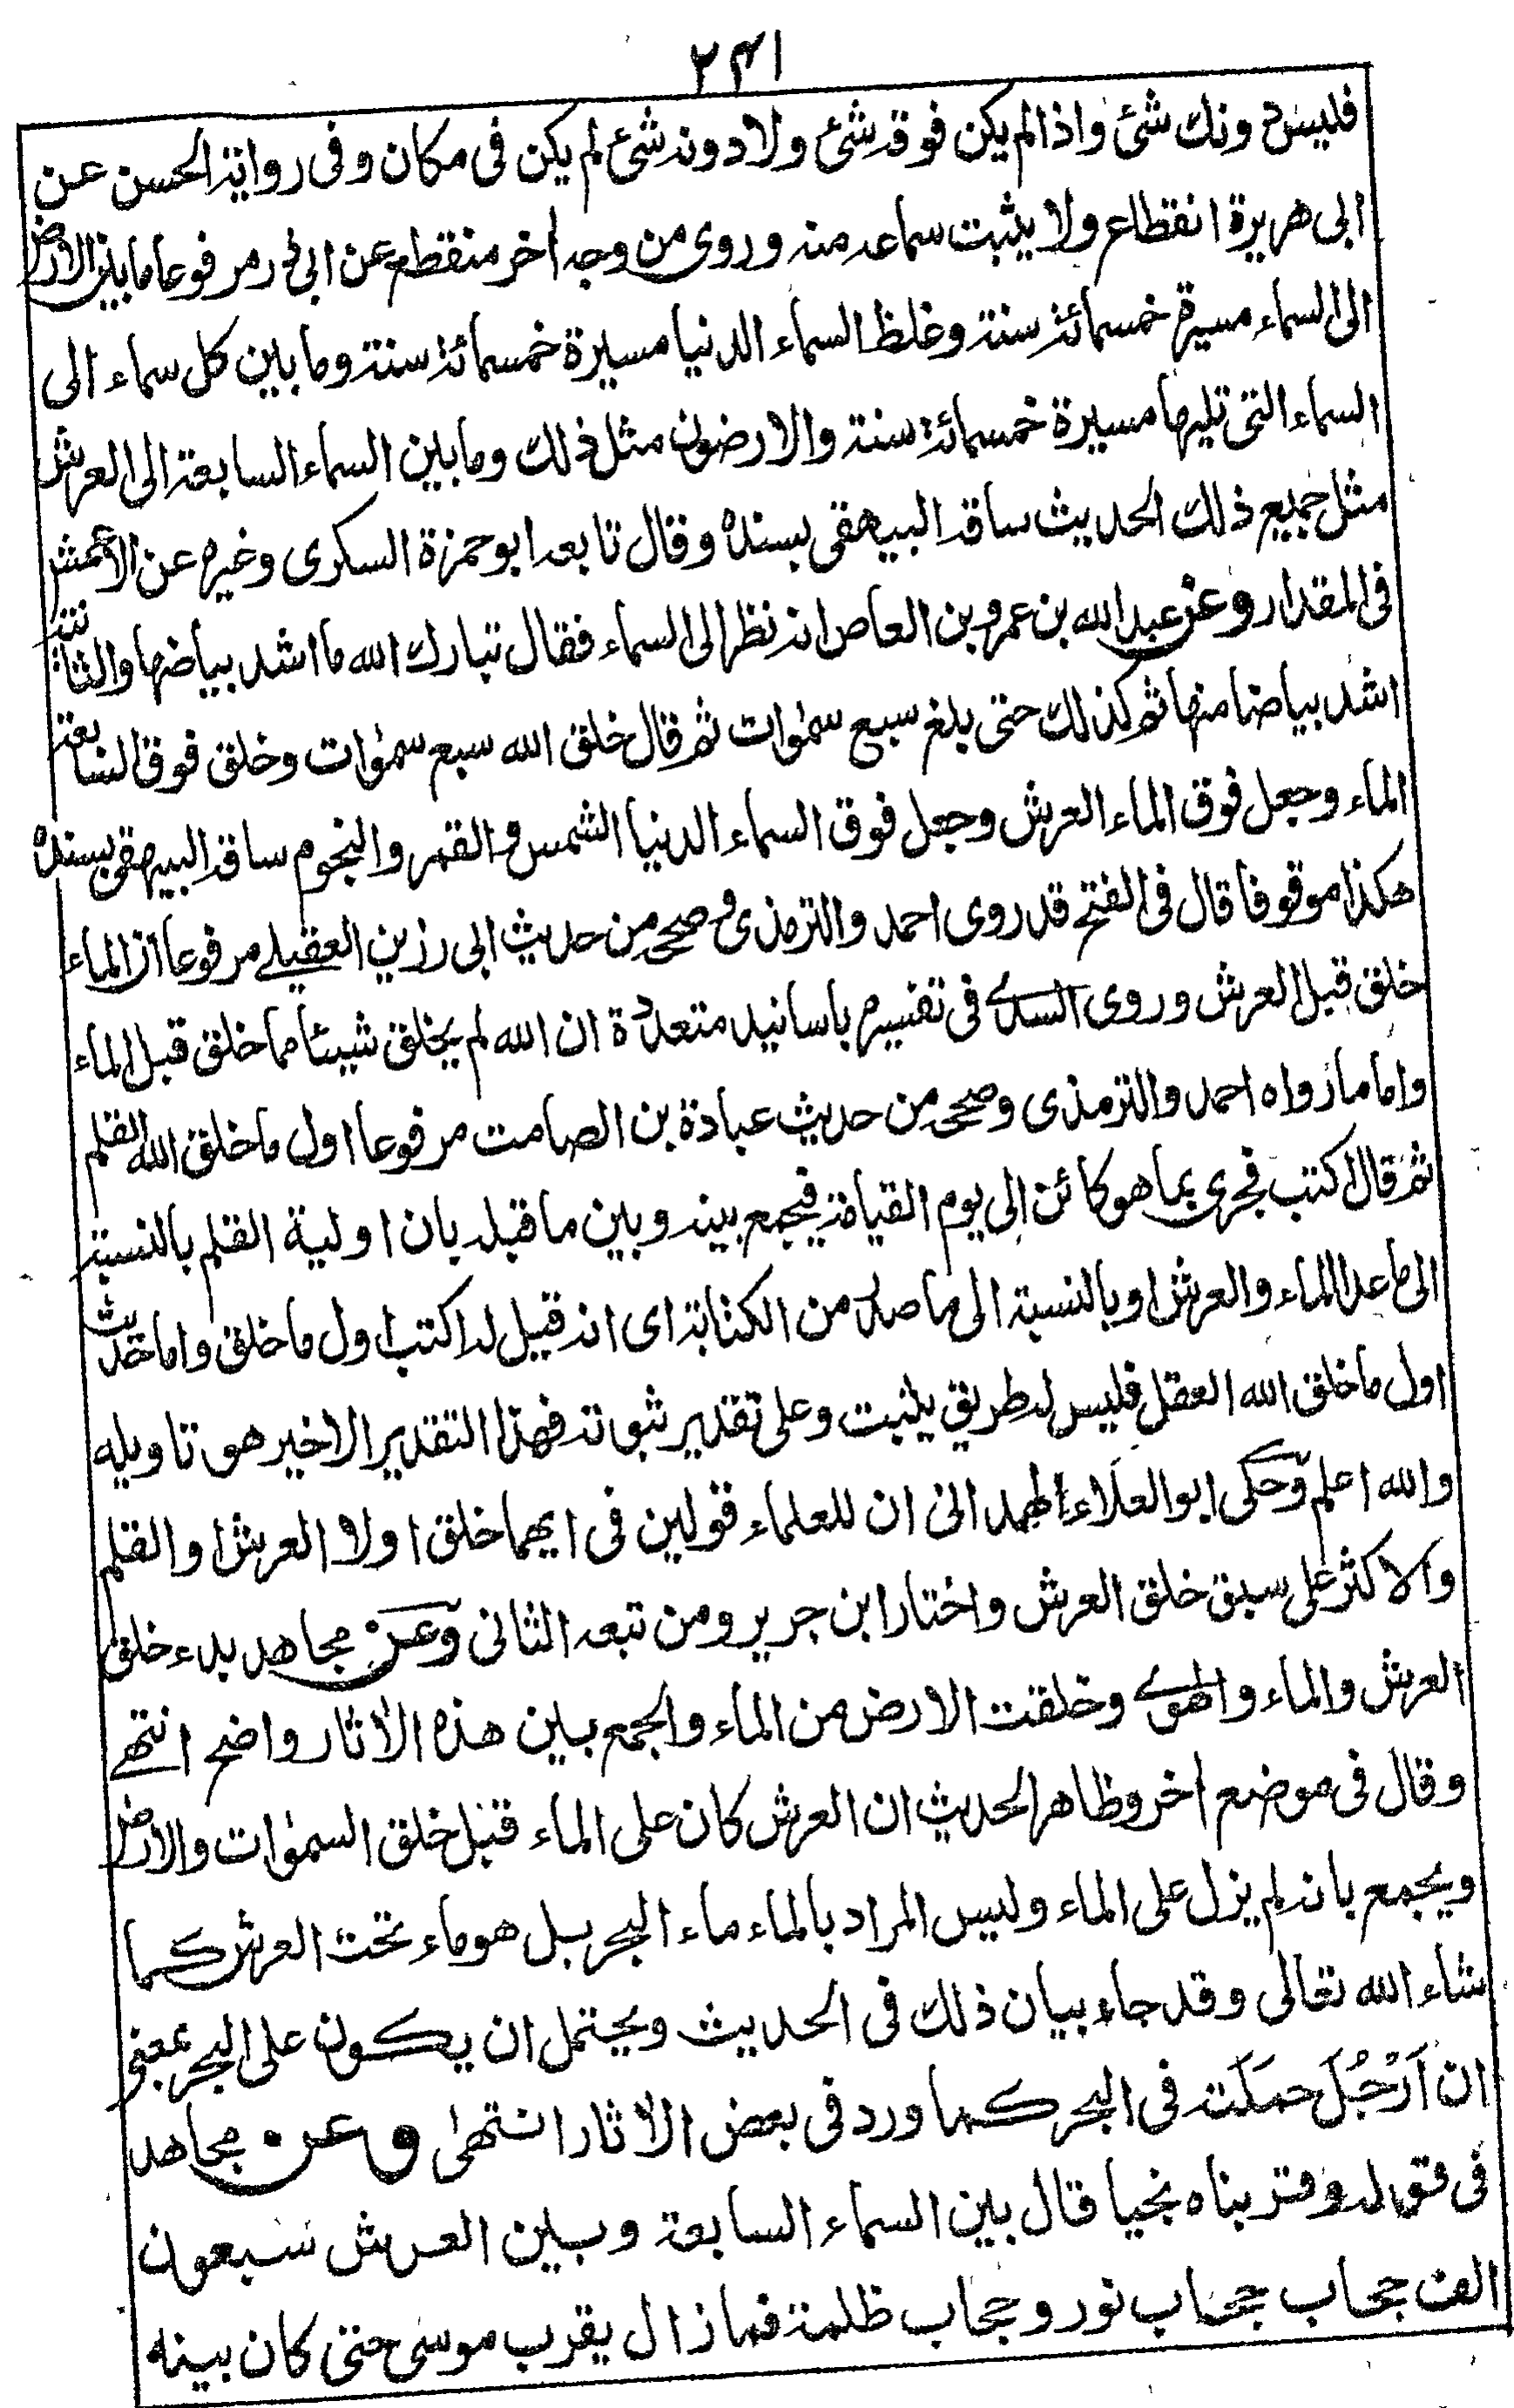 ٢٤١
فليس دونك شئ واذا لم يكن فوقه شئ ولا دونه شئ لم يكن فى مكان وفى رواية الحسن عن
ابى هريرة انقطاع ولا يثبت سماعه منه وروى من وجه اخر منقطع عن ابى ذر مرفوعا ما بين الارض
الى السماء مسيرة خمسمائة سنة وغلظ السماء الدنيا مسيرة خمسمائة سنة وما بين كل سماء الى
السماء التى تليها مسيرة خمسمائة سنة والارضون مثل ذلك وما بين السماء السابعة الى العرش
مثل جميع ذلك الحديث ساقه البيهقى بسنده وقال تابعه ابو حمزة السكرى وغيره عن الأعمش
فى المقدار وعن عبد الله بن عمرو بن العاص انه نظر الى السماء فقال تبارك الله ما اشد بياضها والثانية
اشد بياضا منها ثم كذلك حتى بلغ سبع سمٰوات ثم قال خلق الله سبع سمٰوات وخلق فوق السابعة
الماء وجعل فوق الماء العرش وجعل فوق السماء الدنيا الشمس والقمر والنجوم ساقه البيهقى بسنده
هكذا موقوفا قال فى الفتح قد روى احمد والترمذى وصححه من حديث ابى رزين العقيلے مرفوعا ان الماء
خلق قبل العرش وروى السدے فى تفسيره باسانيد متعددة ان الله لم يخلق شيئا مما خلق قبل الماء
واما ما رواه احمد والترمذى وصححه من حديث عبادة بن الصامت مرفوعا اول ما خلق الله القلم
ثم قال اكتب فجرى بما هو كائن الى يوم القيامة فيجمع بينه وبين ما قبله بان اولية القلم بالنسبة
الى ما عدا الماء والعرش او بالنسبة الى ما صدر من الكتابة اى انه قيل له اكتب اول ما خلق واما حديث
اول ما خلق الله العقل فليس له طريق يثبت وعلى تقدير ثبوته فهذا التقدير الاخير هو تاويله
والله اعلم وحكى ابو العلاء الهمدانى ان للعلماء قولين فى ايهما خلق اولا العرش او القلم
والاكثر على سبق خلق العرش واختار ابن جرير ومن تبعه الثانى وعن مجاهد بدء خلق
العرش والماء والهوے وخلقت الارض من الماء والجمع بين هذه الاٰثار واضح انتهے
وقال فى موضع اخر وظاهر الحديث ان العرش كان على الماء قبل خلق السمٰوات والارض
ويجمع بانه لم يزل على الماء وليس المراد بالماء ماء البحر بل هو ماء تحت العرش كما
شاء الله تعالى وقد جاء بيان ذلك فى الحديث ويحتمل ان يكون على البحر بمعنى
ان اَرْجُلَ حمَلَته فى البحر كما ورد فى بعض الاٰثار انتهىٰ وعن مجاهد
فى قوله وقربناه نجيا قال بين السماء السابعة وبين العرش سبعون
الف حجاب حجاب نور وحجاب ظلمة فما زال يقرب موسى حتى كان بينه